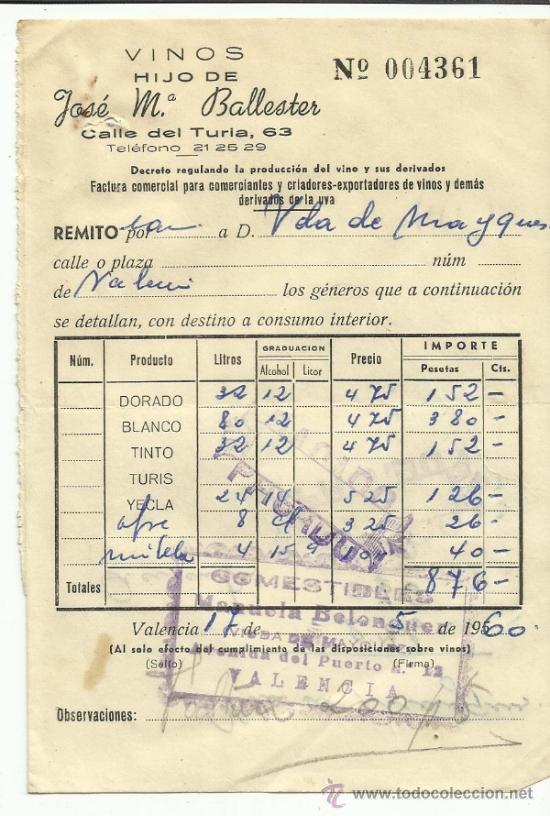 VINOS
HIJO DE
José M.ª Ballester
Calle del Turia, 63
Teléfono 21 25 29
Nº 004361
Decreto regulando la producción del vino y sus derivados
Factura comercial para comerciantes y criadores-exportadores de vinos y demás
derivados de la uva
REMITO por a D. Vda de Mayques
calle o plaza núm
de Valen los géneros que a continuación
se detallan, con destino a consumo interior.
Núm. Producto Litros GRADUACION Alcohol Licor Precio IMPORTE Pesetas Cts.
DORADO 32 12 475 152 –
BLANCO 80 12 475 380 –
TINTO 32 12 475 152 –
TURIS
YECLA 24 14 525 126 –
8 325 26 –
mistela 4 15 9 10 40 –
Totales 876 –
COMESTIBLES
Manuela Belenguer
VIUDA DE MAYQUES
Avenida del Puerto n. 12
VALENCIA
Valencia 17 de 5 de 1960.
(Al solo efecto del cumplimiento de las disposiciones sobre vinos)
(Sello) (Firma)
Observaciones:
todocoleccion
www.todocoleccion.net